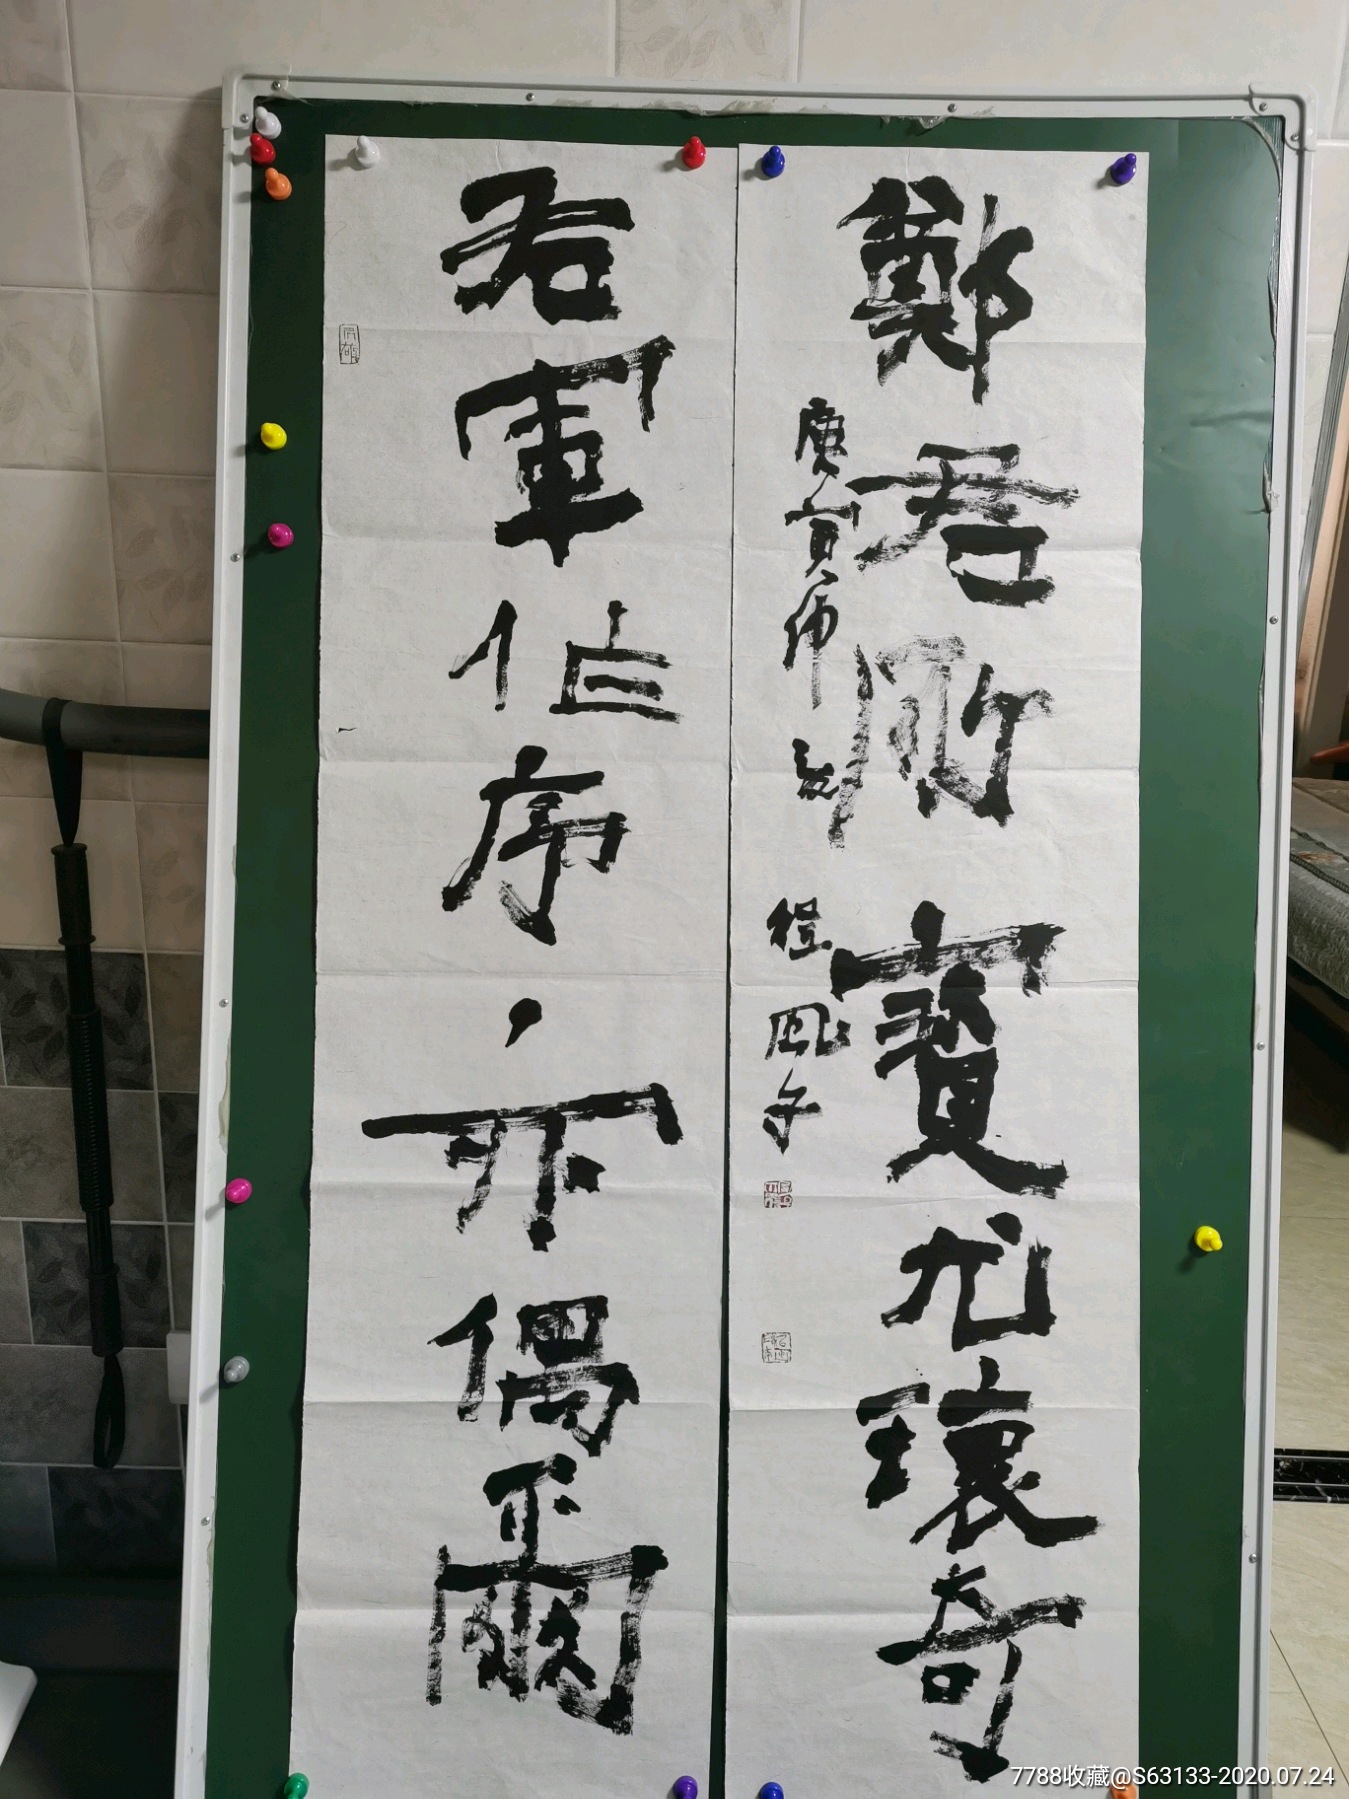 鄭君所寶尤瓌奇
庚寅 程風子
右軍作序亦偶爾
7788收藏@S63133-2020.07.24